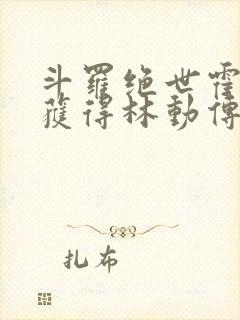 斗羅绝世霍
獲得林動傳
扎布